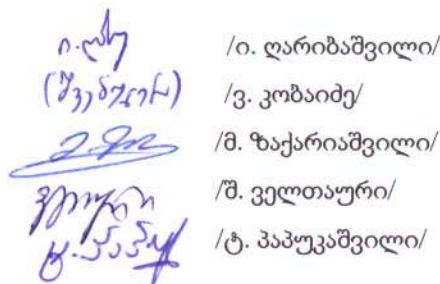 /ი. ღარიბაშვილი/
(შვებულება) /ვ. კობაიძე/
/მ. ზაქარიაშვილი/
/შ. ველთაური/
/ტ. პაპუკაშვილი/